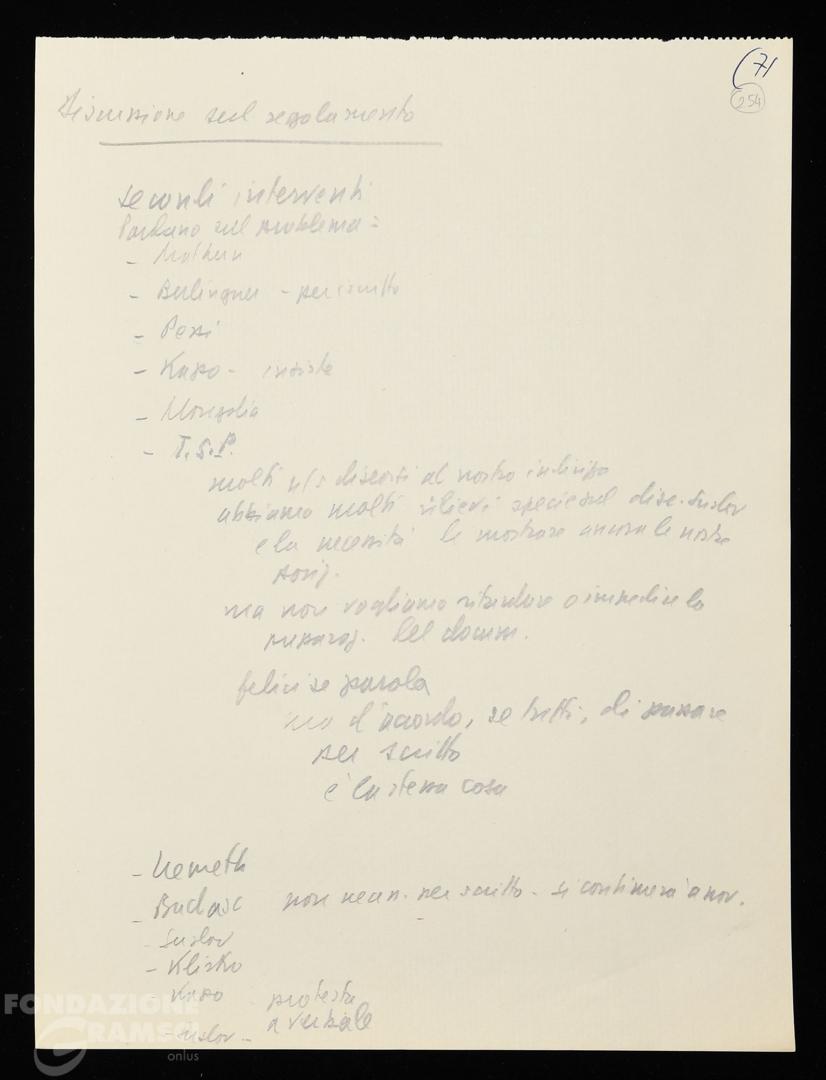 (71
254
Discussione sul regolamento
secondi interventi
Parlano sul problema:
- Berlinguer - per iscritto
- Pessi
- Kapo - insiste
- Mongolia
- T.S.P.
molti discorsi al nostro
abbiamo molti rilievi specie sul disc. Suslov
e la necessità di mostrare ancora le nostre
posiz.
ma non vogliamo ritardare o impedire la
preparaz. del docum.
felici se parola
ma d'accordo, se tutti, di passare
per scritto
è la stessa cosa
- Nemeth
- non per scritto - si continuerà a nov.
- Suslov
- Klisko
- Kapo protesta
a verbale
- Suslov -
FONDAZIONE
GRAMSCI
onlus